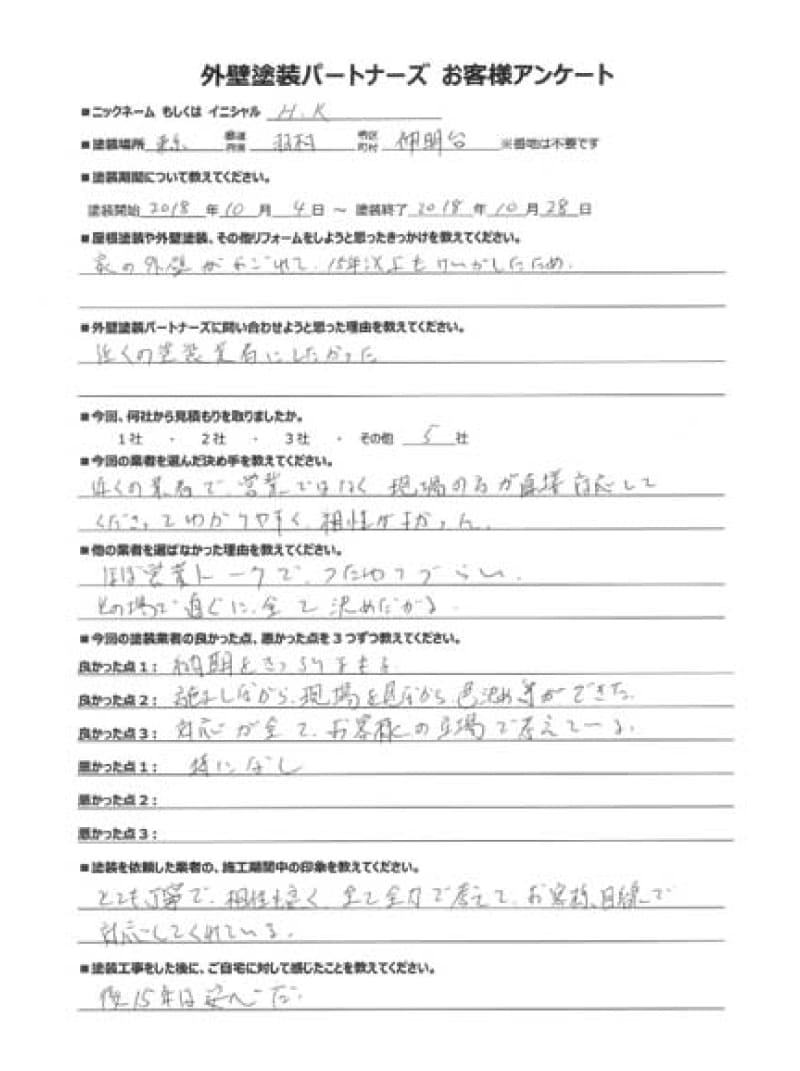 外壁塗装パートナーズ お客様アンケート
■ニックネーム もしくは イニシャル H.K
■塗装場所 東京 都道府県 羽村 市区町村 ※番地は不要です
■塗装期間について教えてください。
塗装開始 2018 年 10 月 4 日 ~ 塗装終了 2018 年 10 月 28 日
■屋根塗装や外壁塗装、その他リフォームをしようと思ったきっかけを教えてください。
家の外壁がよごれて、15年以上もけいかしたため。
■外壁塗装パートナーズに問い合わせようと思った理由を教えてください。
近くの塗装業者にしたかった
■今回、何社から見積もりを取りましたか。
1社 ・ 2社 ・ 3社 ・ その他 5 社
■今回の業者を選んだ決め手を教えてください。
近くの業者で、営業ではなく現場の方が直接対応して
くださってわかりやすく、相性がよかった。
■他の業者を選ばなかった理由を教えてください。
ほぼ営業トークで、
その場で直ぐに、全て決めたがる。
■今回の塗装業者の良かった点、悪かった点を3つずつ教えてください。
良かった点1: 納期をきっちりまもる
良かった点2: 施工しながら、現場を見ながら、色決め等ができた。
良かった点3: 対応が全て、お客様の立場で考えている。
悪かった点1: 特になし
悪かった点2:
悪かった点3:
■塗装を依頼した業者の、施工期間中の印象を教えてください。
とても丁寧で、相性も良く、全て全力で考えて、お客様目線で
対応してくれている。
■塗装工事をした後に、ご自宅に対して感じたことを教えてください。
後15年は安心だ。